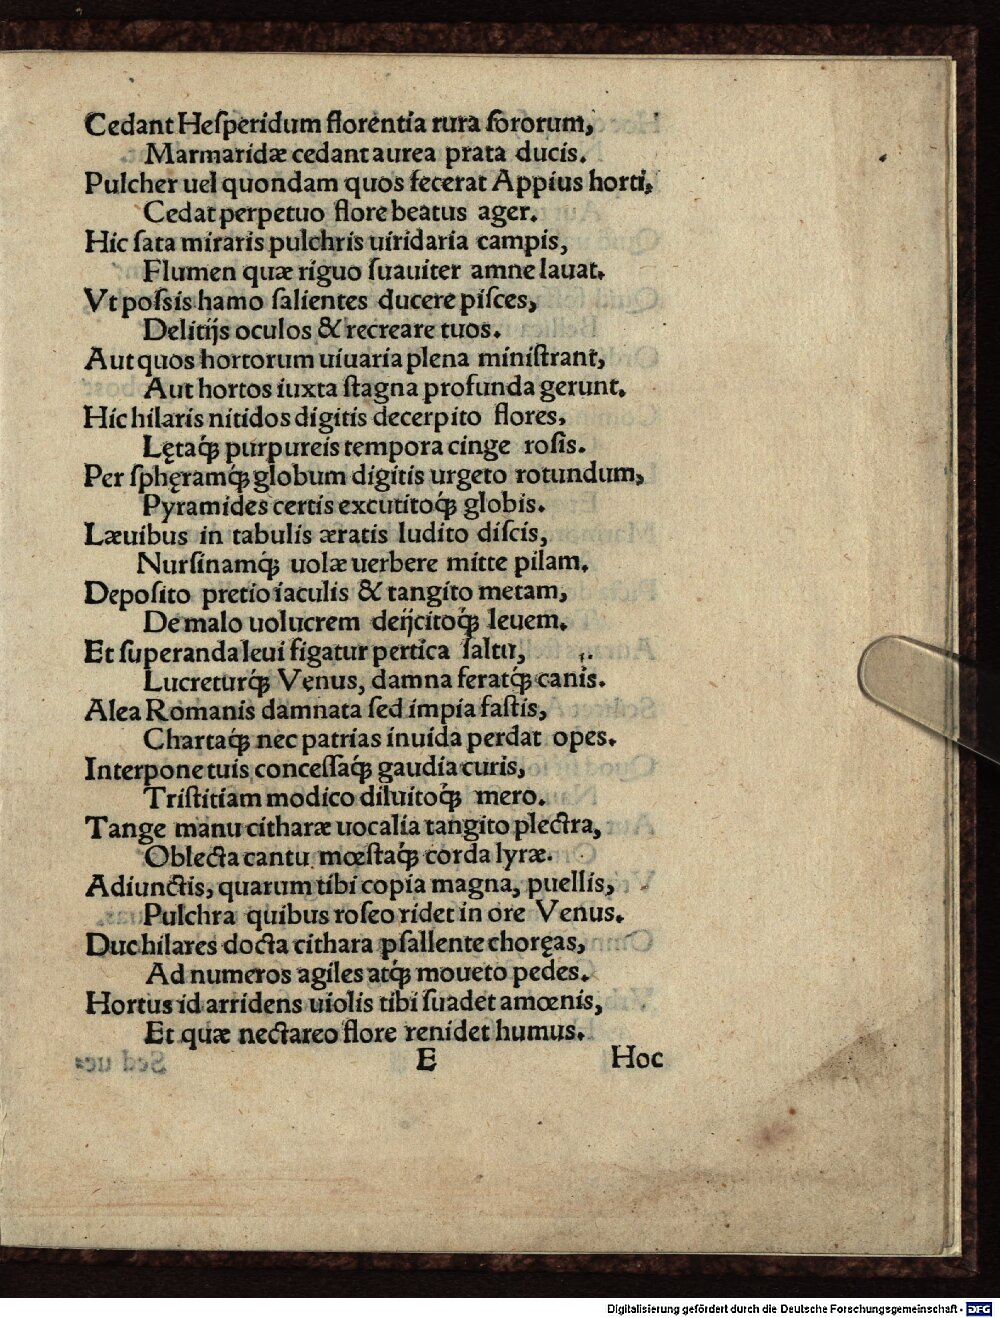 Cedant Heſperidum florentia rura ſororum,
Marmaridæ cedant aurea prata ducis.
Pulcher uel quondam quos fecerat Appius horti,
Cedat perpetuo flore beatus ager.
Hic ſata miraris pulchris uiridaria campis,
Flumen quæ riguo ſuauiter amne lauat.
Vt poſsis hamo ſalientes ducere piſces,
Delitijs oculos & recreare tuos.
Aut quos hortorum uiuaria plena miniſtrant,
Aut hortos iuxta ſtagna profunda gerunt.
Hic hilaris nitidos digitis decerpito flores,
Lętaq́; purpureis tempora cinge roſis.
Per ſphęramq́; globum digitis urgeto rotundum,
Pyramides certis excutitoq́; globis.
Læuibus in tabulis æratis ludito diſcis,
Nurſinamq́; uolæ uerbere mitte pilam.
Depoſito pretio iaculis & tangito metam,
De malo uolucrem deijcitoq́; leuem.
Et ſuperanda leui figatur pertica ſaltu,
Lucreturq́; Venus, damna feratq́; canis.
Alea Romanis damnata ſed impia faſtis,
Chartaq́; nec patrias inuida perdat opes.
Interpone tuis conceſſaq́; gaudia curis,
Triſtitiam modico diluitoq́; mero.
Tange manu citharæ uocalia tangito plectra,
Oblecta cantu mœſtaq́; corda lyræ.
Adiunctis, quarum tibi copia magna, puellis,
Pulchra quibus roſeo ridet in ore Venus.
Duc hilares docta cithara pſallente choręas,
Ad numeros agiles atq́; moueto pedes.
Hortus id arridens uiolis tibi ſuadet amœnis,
Et quæ nectareo flore renidet humus.
E Hoc
Digitalisierung gefördert durch die Deutsche Forschungsgemeinschaft - DFG